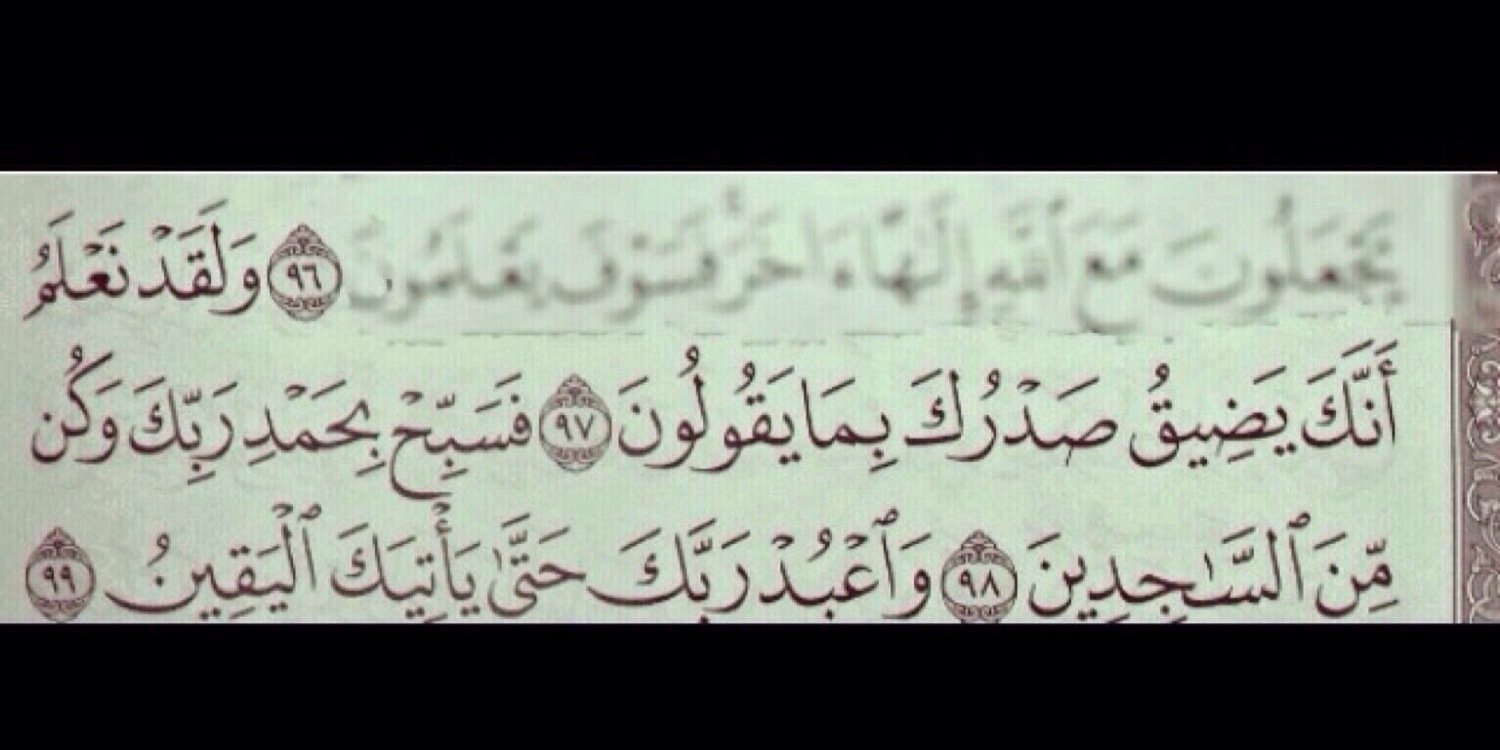 يَجْعَلُونَ مَعَ ٱللَّهِ إِلَٰهًا ءَاخَرَ فَسَوْفَ يَعْلَمُونَ ٩٦ وَلَقَدْ نَعْلَمُ
أَنَّكَ يَضِيقُ صَدْرُكَ بِمَا يَقُولُونَ ٩٧ فَسَبِّحْ بِحَمْدِ رَبِّكَ وَكُن
مِّنَ ٱلسَّٰجِدِينَ ٩٨ وَٱعْبُدْ رَبَّكَ حَتَّىٰ يَأْتِيَكَ ٱلْيَقِينُ ٩٩